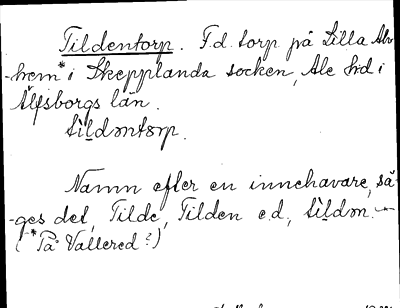 Tildentorp. F.d. torp på Lilla Alv-
-hem* i Skepplanda socken, Ale hd i
Älfsborgs län.
tìldəntɔrp.
Namn efter en innehavare, så-
-ges det, Tilde, Tilden e.d., tìldən.
(*På Vallered?)